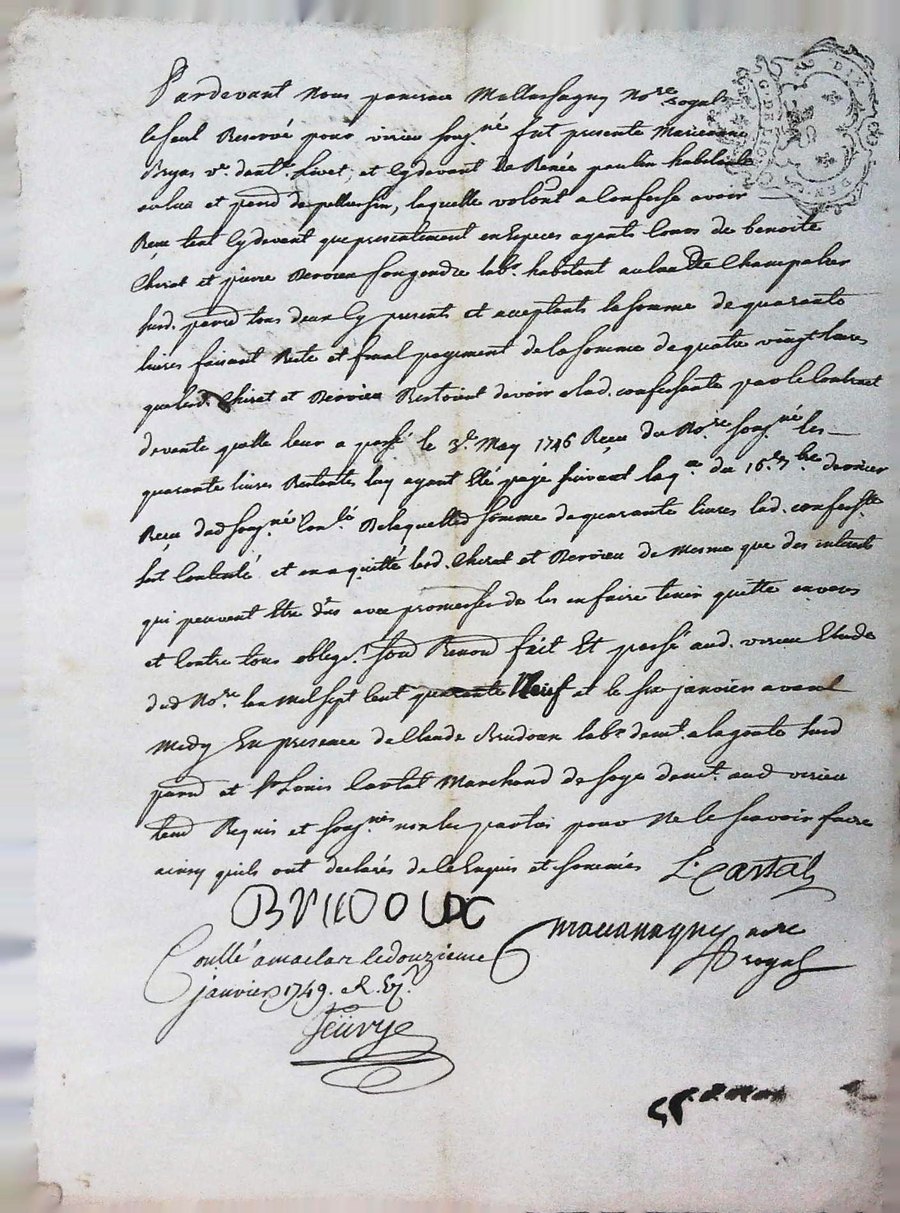 Pardevant Nous pancrace Mallassagny No.re royal
le seul Reservé pour virieu soug.né fut presente Marieanne
v.e dant.e Livet, et cydevant de Renée paulin habitante
au lieu et parr.d de pellussin, laquelle volont. a Confesse avoir
Receu tant cydevant que presentement en Especes agents Cours de benoite
Chirat et pierre Bervieu son gendre lab.r habitant au lieu de Champalier
susd. parrd tous deux cy presents et acceptants la somme de quarante
livres faisant Reste et final payement de la somme de quatre vingt livres
que lesd. Chirat et Bervieu Restoient devoir a lad. confessante par le Contract
de vente quelle leur a passé le 3.e May 1746 Receu du No.re soug.né les
quarante livres Restantes luy ayant Eté payé suivant la q.ce du 16.e 7.bre dernier
Receu dud soug.né Con.lé De laquelle d somme de quarante livres lad. confess.te
sest Contenté et en a quitté lesd. Chirat et Bervieu de Mesme que des interests
qui peuvent Etre dûs avec promesses de les en faire tenir quitte envers
et Contre tous oblige.t soud Renon.d fait Et passé aud. virieu Etude
dud No.re lan Mil sept Cent quarante Neuf et le six janvier avant
Midy En presence de Claude Brudoux lab.r demt. a la gente susd
parrd et s.r Louis Cartal Marchand de soye demt. aud virieu
temd Requis et soug.nés non les parties pour Ne le scavoir faire
ainsy quils ont declarés de ce Enquis et sommés L. Cartal
BRUDOUX
Mallassagny no.re
royal
Conllé a maclas le douzieme
janvier 1749. R.